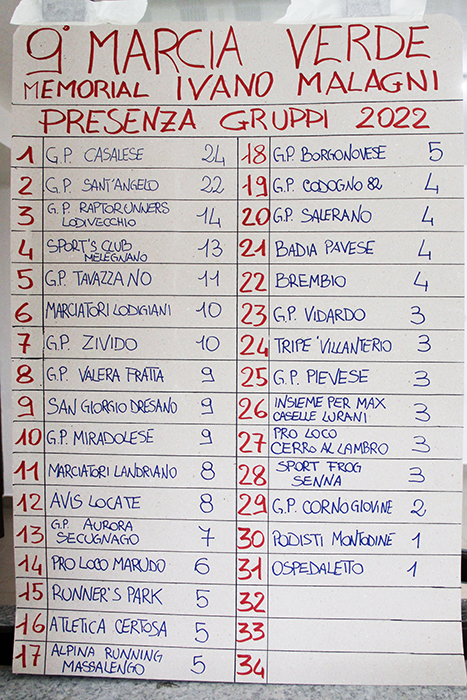 9° MARCIA VERDE
MEMORIAL IVANO MALAGNI
PRESENZA GRUPPI 2022
1 G.P. CASALESE 24
2 G.P. SANT'ANGELO 22
3 G.P. RAPTORUNNERS
LODIVECCHIO 14
4 SPORT'S CLUB
MELEGNANO 13
5 G.P. TAVAZZANO 11
6 MARCIATORI LODIGIANI 10
7 G.P. ZIVIDO 10
8 G.P. VALERA FRATTA 9
9 SAN GIORGIO DRESANO 9
10 G.P. MIRADOLESE 9
11 MARCIATORI LANDRIANO 8
12 AVIS LOCATE 8
13 G.P. AURORA
SECUGNAGO 7
14 PRO LOCO MARUDO 6
15 RUNNER'S PARK 5
16 ATLETICA CERTOSA 5
17 ALPINA RUNNING
MASSALENGO 5
18 G.P. BORGONOVESE 5
19 G.P. CODOGNO 82 4
20 G.P. SALERANO 4
21 BADIA PAVESE 4
22 BREMBIO 4
23 G.P. VIDARDO 3
24 TRIPE 'VILLANTERIO 3
25 G.P. PIEVESE 3
26 INSIEME PER MAX
CASELLE LURANI 3
27 PRO LOCO
CERRO AL LAMBRO 3
28 SPORT FROG
SENNA 3
29 G.P. CORNOGIOVINE 2
30 PODISTI MONTODINE 1
31 OSPEDALETTO 1
32
33
34